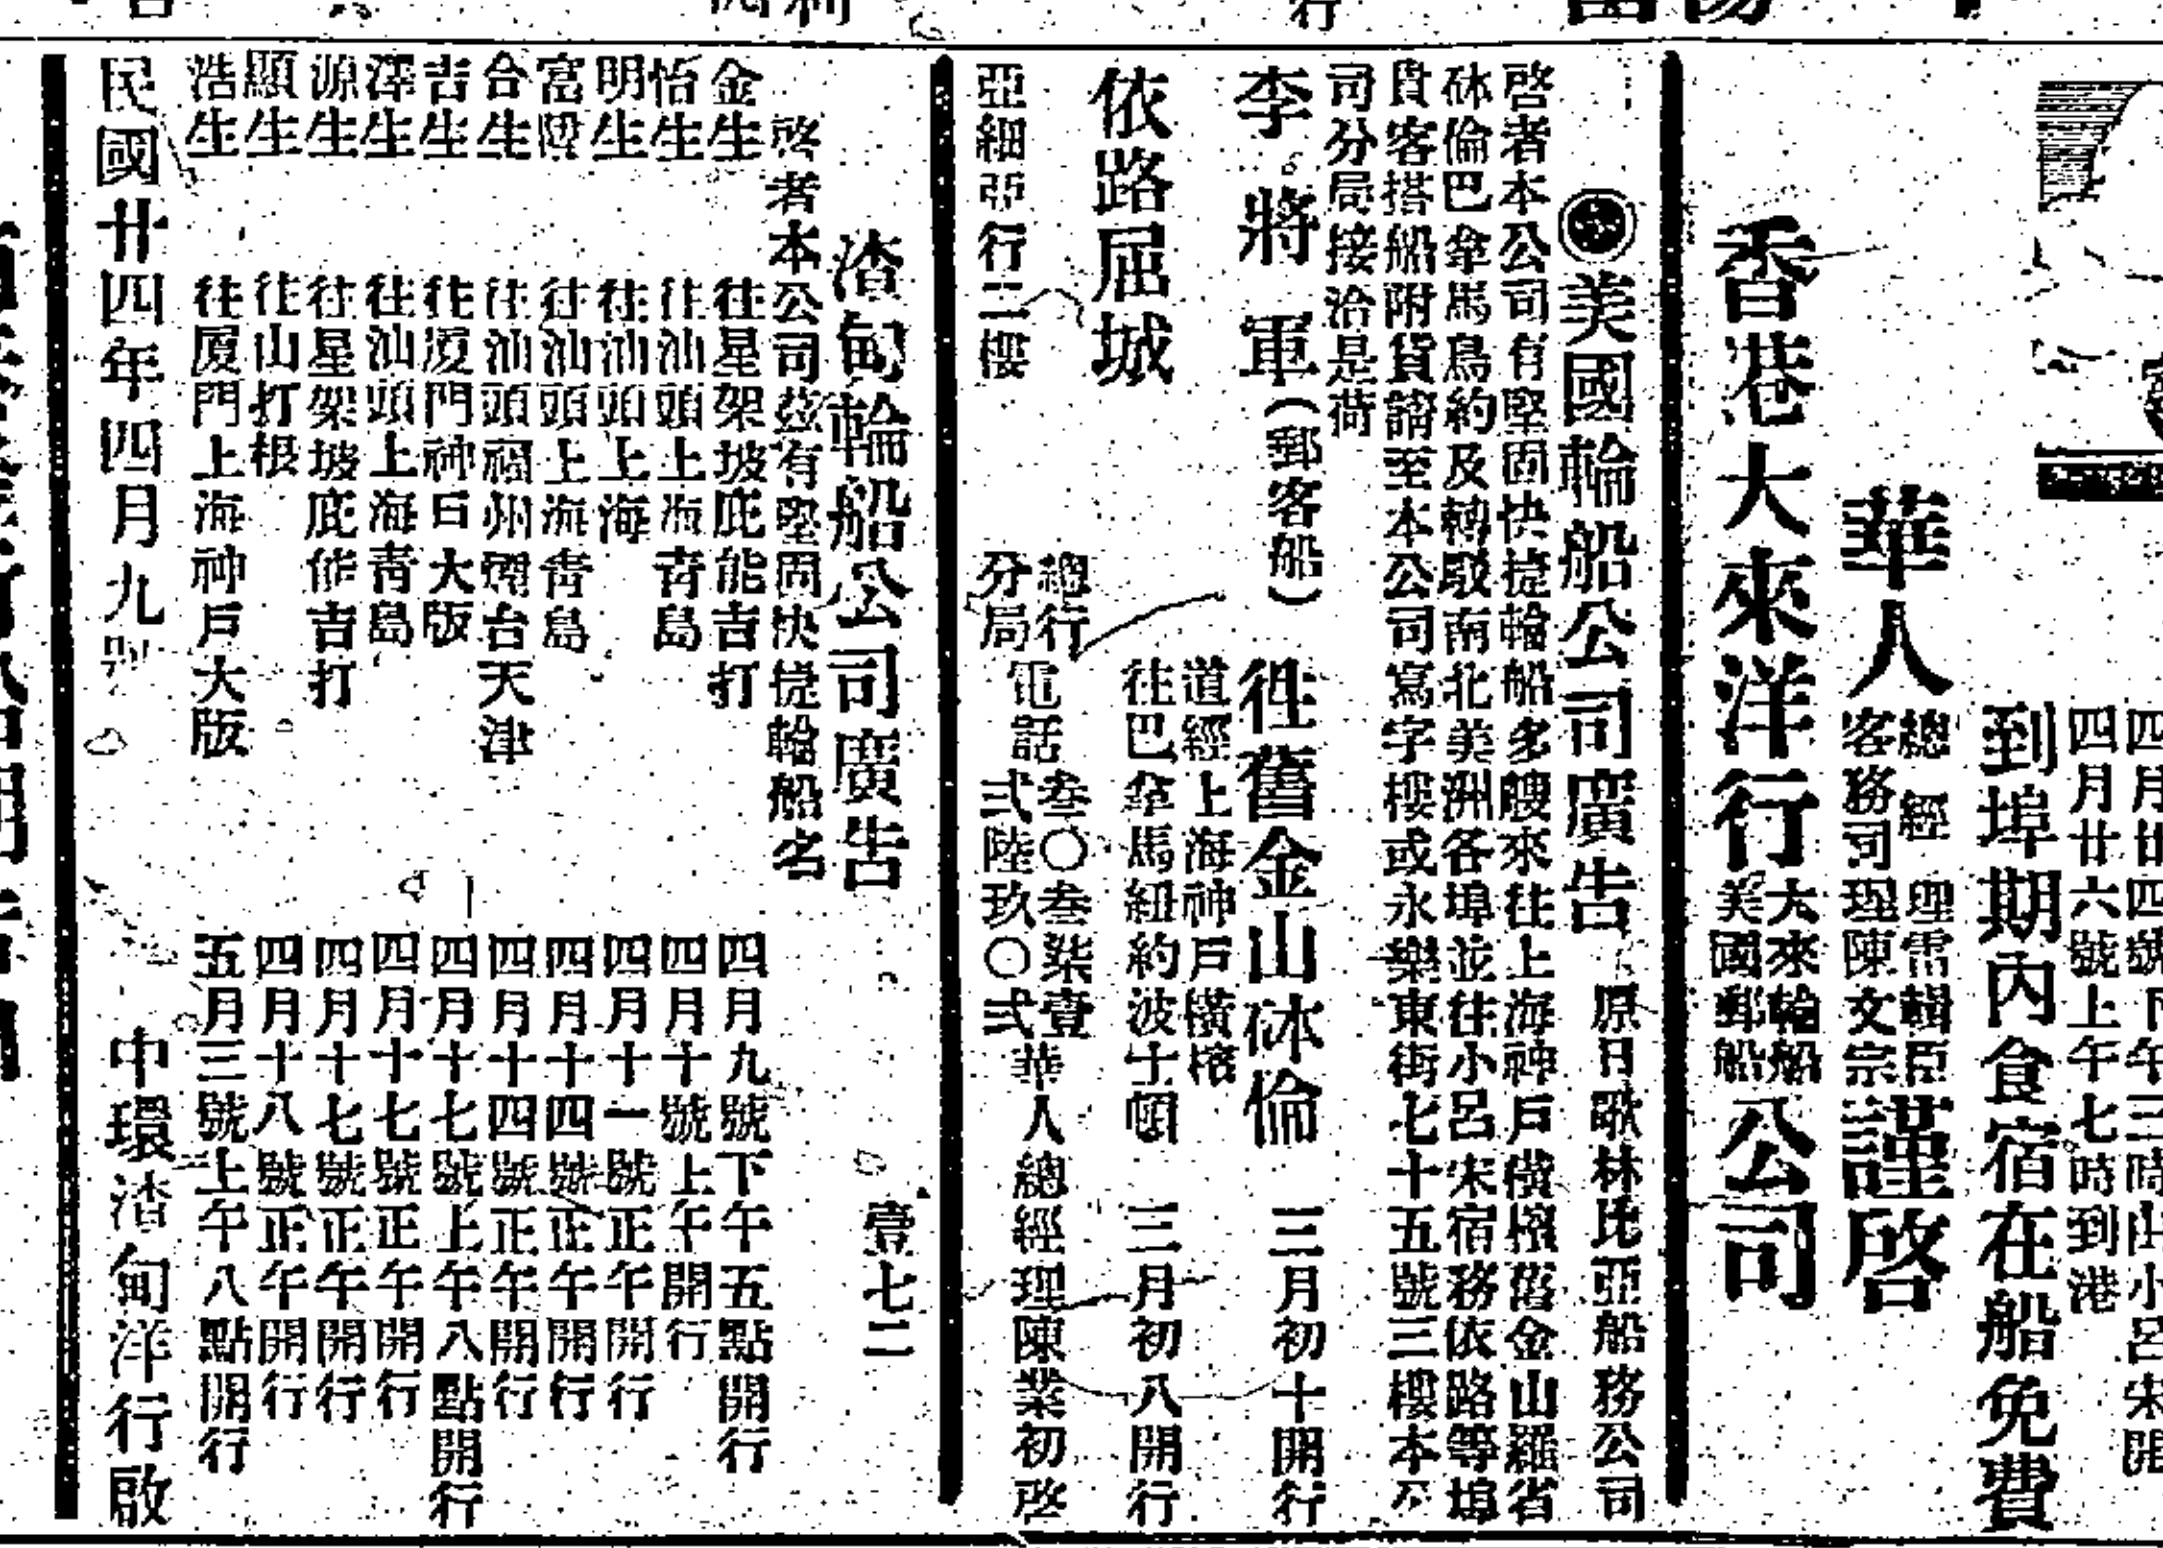 四月廿六號上午七時到港
到埠期內食宿在船免費
華人
總經理雷輯臣
客務司理陳文宗
謹啓
香港大來洋行
大來輪船
美國郵船
公司
美國輪船公司廣告
原日歌林比亞船務公司
啓者本公司有堅固快捷輪船多艘來往上海神戶橫檳舊金山羅省
砵倫巴拿馬鳥約及轉駁南北美洲各埠並往小呂宋宿務依路等埠
貴客搭船附貨請至本公司寫字樓或永樂東街七十五號三樓本公
司分局接洽是荷
李將軍（郵客船）
往舊金山砵倫
三月初十開行
依路屈城
道經上海神戶橫檳
往巴拿馬紐約波士頓
三月初八開行
亞細亞行二樓
總行
分局
電話
叁〇叁柒壹
弍陸玖〇弍
華人總經理陳業初啓
渣甸輪船公司廣告
壹七二
啓者本公司茲有堅固快捷輪船名
金生 往星架坡庇能吉打 四月九號下午五點開行
怡生 往汕頭上海青島 四月十號上午開行
明生 往汕頭上海 四月十一號正午開行
富陞 往汕頭上海青島 四月十四號正午開行
合生 往汕頭福州烟台天津 四月十四號正午開行
吉生 往厦門神戶大版 四月十七號上午八點開行
澤生 往汕頭上海青島 四月十七號正午開行
源生 往星架坡庇能吉打 四月十七號正午開行
顯生 往山打根 四月十八號正午開行
浩生 往厦門上海神戶大版 五月三號上午八點開行
民國廿四年四月九
中環渣甸洋行啟